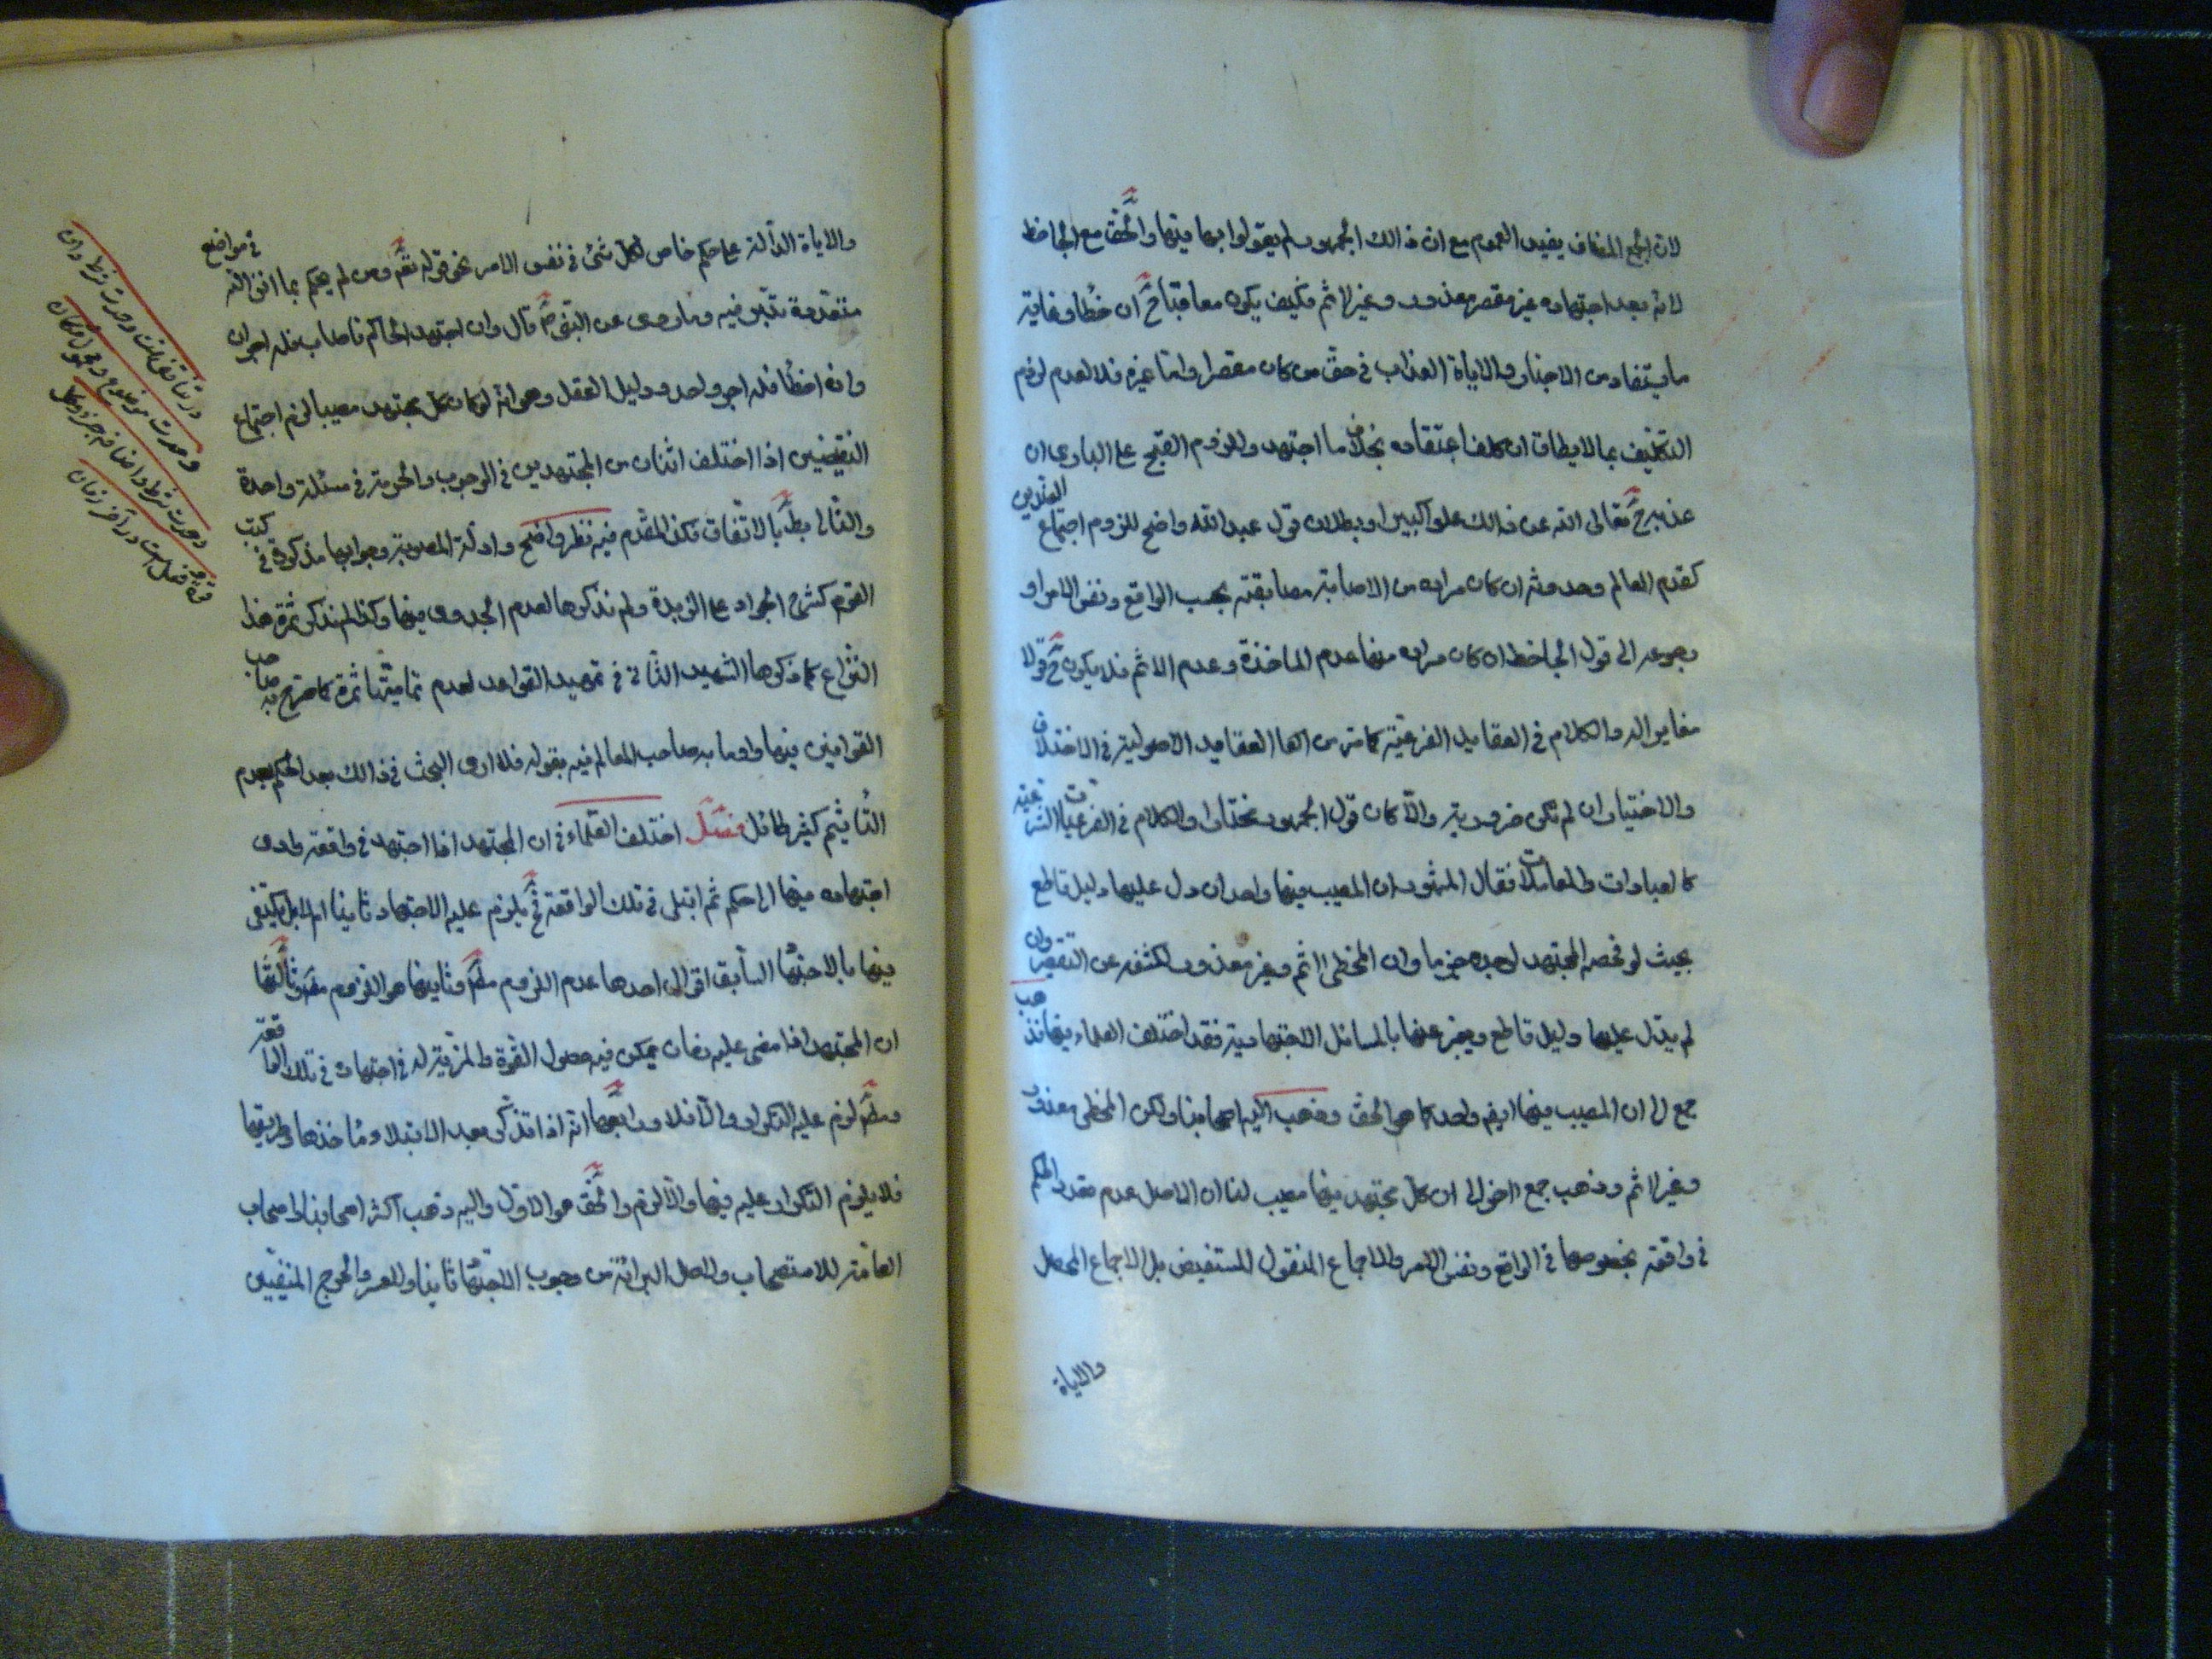 لان الجمع المضاف يفيد العموم مع ان ذالك الجمهور لم يقولوا بها فيها والحق مع الجاحظ
لانه بعد اجتهاده غير مقصر معذور وغير اثم فكيف يكون معاقبا ح ان خطأ وغاية
ما يستفاد من الاخبار والاياة العذاب في حق من كان مقصرا واما غيره فلا لعدم لزوم
التكليف بما لا يطاق ان كلف اعتقاده بخلاف ما اجتهد وللزوم القبح على الباري ان
عذبه ح تعالى الله عن ذالك علوا كبيرا وبطلان قول عبد الله واضح للزوم اجتماع الضدين
كقدم العالم وحدوثه ان كان مراده من الاصابة مطابقته بحسب الواقع ونفس الامر او
رجوعه الى قول الجاحظ ان كان مراده منها عدم الماخذة وعدم الاثم فلا يكون ح قولا
مغايرا له والكلام في العقايد الفرعية كما مر من العقايد الاصولية في الاختلاف
والاختيار ان لم تكن ضرورية والا كان قول الجمهور مختارا والكلام في الفرعيات الشرعية
كالعبادات والمعاملات فقال المشهور ان المصيب فيها واحد ان دل عليها دليل قاطع
بحيث لو فحصه المجتهد لوجده جزما وان المخطئ اثم وغير معذور لكشفه عن التقصير وان
لم يدل عليها دليل قاطع ويعبر عنها بالمسائل الاجتهادية فقد اختلف العلماء فيها فذهب
جمع الى ان المصيب فيها ايضم واحد كما هو الحق وذهب اليه اصحابنا ولكن المخطى معذور
وغير اثم وذهب جمع اخر الى ان كل مجتهد فيها مصيب لنا ان الاصل عدم تعدد الحكم
في واقعة بخصوصها في الواقع ونفس الامر والاجماع المنقول المستفيض بل الاجماع المحصل
والاياة
والاياة الدالة على حكم خاص لكل شئ في نفس الامر نحو قوله تعم ومن لم يحكم بما انزل الله في مواضع
متعددة فيه وما روى عن النبي ص قال وان اجتهد الحاكم فاصاب فله اجران
وان اخطأ فله اجر واحد ودليل العقل وهو انه لو كان كل مجتهد مصيبا لزم اجتماع
النقيضين اذا اختلف اثنان من المجتهدين في الوجوب والحرمة في مسئلة واحدة
والتالى بط بالاتفاق فكذا المقدم فيه نظر واضح وادلة المصوبة وجوابها مذكورة في كتب
القوم كشرح الجواد على الزبدة ولم نذكرها لعدم الجدوى فيها وكذا لم نذكر ثمرة هذا
النزاع كما ذكرها الشهيد الثاني في تمهيد القواعد لعدم تمامية الثمرة كما صرح به صاحب
القوانين فيها واوما به صاحب المعالم فيه بقوله فلا ارى البحث في ذالك بعد الحكم بعدم
التأثيم كثير طائل فصل اختلف العلماء في ان المجتهد اذا اجتهد في واقعة وادى
اجتهاده فيها الى حكم ثم ابتلى في تلك الواقعة فح يلزم عليه الاجتهاد ثانيا ام لا بل يكتفى
فيها بالاجتهاد السابق اقوال احدها عدم اللزوم مطم وثانيها هو اللزوم مطم وثالثها
ان المجتهد اذا مضى عليه زمان يمكن فيه حصول القوة والمزية له في اجتهاده في تلك الواقعة
لزم عليه التكرار والا فلا ورابعها انه اذا تذكر بعد الابتلاء ماخذها وطريقها
فلا يلزم التكرار عليه فيها والا لزم والحق هو الاول واليه ذهب اكثر اصحابنا واصحاب
العامة للاستصحاب والاصل البرائة من وجوب الاجتهاد ثانيا وللعسر والحرج المنفيين
در تناقض هشت وحدت شرط دان
وحدت موضوع و محمول و مكان
وحدت شرط و اضافه جزء و كل
قوه و فعل است در آخر زمان